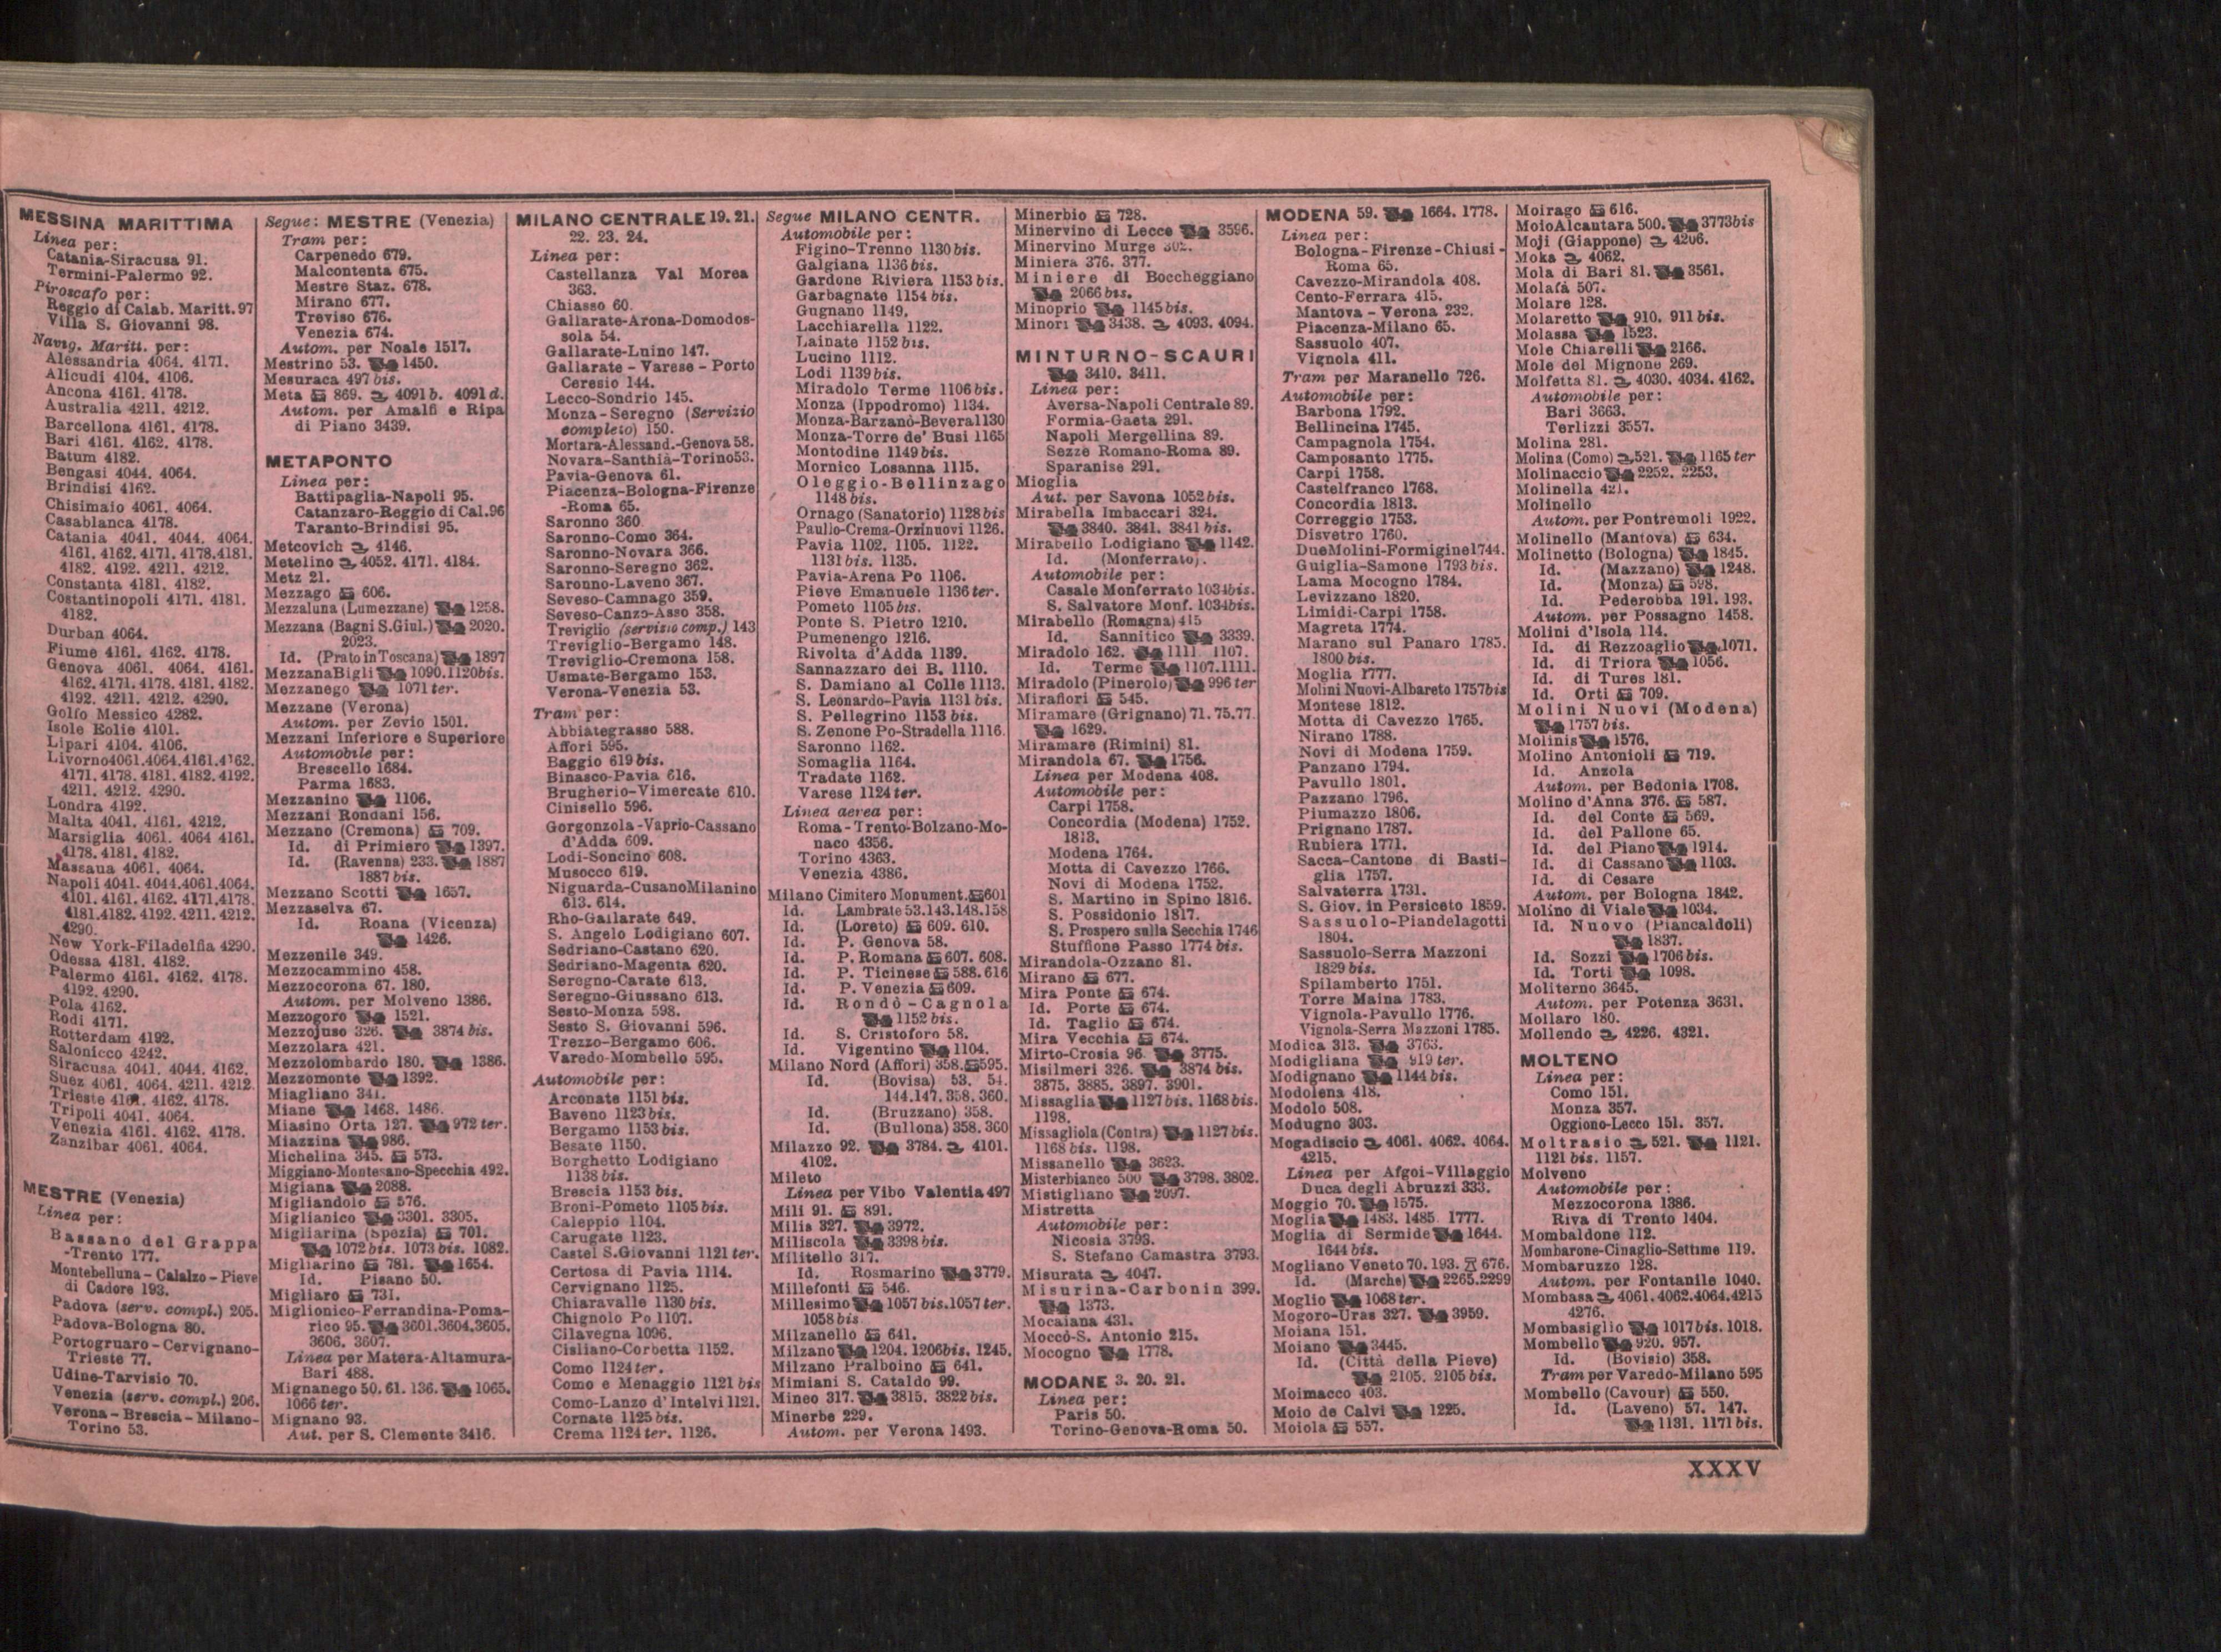 MESSINA MARITTIMA
Linea per:
Catania-Siracusa 91.
Termini-Palermo 92.
Piroscafo per:
Reggio di Calab. Maritt. 97
Villa S. Giovanni 98.
Navig. Maritt. per:
Alessandria 4064. 4171.
Alicudi 4104. 4106.
Ancona 4161. 4178.
Australia 4211. 4212.
Barcellona 4161. 4178.
Bari 4161. 4162. 4178.
Batum 4182.
Bengasi 4044. 4064.
Brindisi 4162.
Chisimaio 4061. 4064.
Casablanca 4178.
Catania 4041. 4044. 4064.
4161. 4162. 4171. 4178. 4181.
4182. 4192. 4211. 4212.
Constanta 4181. 4182.
Costantinopoli 4171. 4181.
4182.
Durban 4064.
Fiume 4161. 4162. 4178.
Genova 4061. 4064. 4161.
4162. 4171. 4178. 4181. 4182.
4192. 4211. 4212. 4290.
Golfo Messico 4282.
Isole Eolie 4101.
Lipari 4104. 4106.
Livorno 4061. 4064. 4161. 4162.
4171. 4178. 4181. 4182. 4192.
4211. 4212. 4290.
Londra 4192.
Malta 4041. 4161. 4212.
Marsiglia 4061. 4064 4161.
4178. 4181. 4182.
Massaua 4061. 4064.
Napoli 4041. 4044. 4061. 4064.
4101. 4161. 4162. 4171. 4178.
4181. 4182. 4192. 4211. 4212.
4290.
New York-Filadelfia 4290.
Odessa 4181. 4182.
Palermo 4161. 4162. 4178.
4192. 4290.
Pola 4162.
Rodi 4171.
Rotterdam 4192.
Salonicco 4242.
Siracusa 4041. 4044. 4162.
Suez 4061. 4064. 4211. 4212.
Trieste 4161. 4162. 4178.
Tripoli 4041. 4064.
Venezia 4161. 4162. 4178.
Zanzibar 4061. 4064.
MESTRE (Venezia)
Linea per:
Bassano del Grappa
-Trento 177.
Montebelluna - Calalzo - Pieve
di Cadore 193.
Padova (serv. compl.) 205.
Padova-Bologna 80.
Portogruaro - Cervignano-
Trieste 77.
Udine-Tarvisio 70.
Venezia (serv. compl.) 206.
Verona - Brescia - Milano-
Torino 53.
Segue: MESTRE (Venezia)
Tram per:
Carpenedo 679.
Malcontenta 675.
Mestre Staz. 678.
Mirano 677.
Treviso 676.
Venezia 674.
Autom. per Noale 1517.
Mestrino 53. 1450.
Mesuraca 497 bis.
Meta 869. 4091 b. 4091 d.
Autom. per Amalfi e Ripa
di Piano 3439.
METAPONTO
Linea per:
Battipaglia-Napoli 95.
Catanzaro-Reggio di Cal. 96
Taranto-Brindisi 95.
Metcovich 4146.
Metelino 4052. 4171. 4184.
Metz 21.
Mezzago 606.
Mezzaluna (Lumezzane) 1258.
Mezzana (Bagni S. Giul.) 2020.
2023.
Id. (Prato in Toscana) 1897
Mezzana Bigli 1090. 1120 bis.
Mezzanego 1071 ter.
Mezzane (Verona)
Autom. per Zevio 1501.
Mezzani Inferiore e Superiore
Automobile per:
Brescello 1684.
Parma 1683.
Mezzanino 1106.
Mezzani Rondani 156.
Mezzano (Cremona) 709.
Id. di Primiero 1397.
Id. (Ravenna) 233. 1887
1887 bis.
Mezzano Scotti 1657.
Mezzaselva 67.
Id. Roana (Vicenza)
1426.
Mezzenile 349.
Mezzocammino 458.
Mezzocorona 67. 180.
Autom. per Molveno 1386.
Mezzogoro 1521.
Mezzojuso 326. 3874 bis.
Mezzolara 421.
Mezzolombardo 180. 1386.
Mezzomonte 1392.
Miagliano 341.
Miane 1468. 1486.
Miasino Orta 127. 972 ter.
Miazzina 986.
Michelina 345. 573.
Miggiano-Montesano-Specchia 492.
Migiana 2088.
Migliandolo 576.
Miglianico 3301. 3305.
Migliarina (Spezia) 701.
1072 bis. 1073 bis. 1082.
Migliarino 781. 1654.
Id. Pisano 50.
Migliaro 731.
Miglionico-Ferrandina-Poma-
rico 95. 3601. 3604. 3605.
3606. 3607.
Linea per Matera-Altamura-
Bari 488.
Mignanego 50. 61. 136. 1065.
1066 ter.
Mignano 93.
Aut. per S. Clemente 3416.
MILANO CENTRALE 19. 21.
22. 23. 24.
Linea per:
Castellanza Val Morea
363.
Chiasso 60.
Gallarate-Arona-Domodos-
sola 54.
Gallarate-Luino 147.
Gallarate - Varese - Porto
Ceresio 144.
Lecco-Sondrio 145.
Monza - Seregno (Servizio
completo) 150.
Mortara-Alessand.-Genova 58.
Novara-Santhià-Torino 53.
Pavia-Genova 61.
Piacenza-Bologna-Firenze
-Roma 65.
Saronno 360.
Saronno-Como 364.
Saronno-Novara 366.
Saronno-Seregno 362.
Saronno-Laveno 367.
Seveso-Camnago 359.
Seveso-Canzo-Asso 358.
Treviglio (servizio comp.) 143
Treviglio-Bergamo 148.
Treviglio-Cremona 158.
Usmate-Bergamo 153.
Verona-Venezia 53.
Tram per:
Abbiategrasso 588.
Affori 595.
Baggio 619 bis.
Binasco-Pavia 616.
Brugherio-Vimercate 610.
Cinisello 596.
Gorgonzola - Vaprio-Cassano
d'Adda 609.
Lodi-Soncino 608.
Musocco 619.
Niguarda-Cusano Milanino
613. 614.
Rho-Gallarate 649.
S. Angelo Lodigiano 607.
Sedriano-Castano 620.
Sedriano-Magenta 620.
Seregno-Carate 613.
Seregno-Giussano 613.
Sesto-Monza 598.
Sesto S. Giovanni 596.
Trezzo-Bergamo 606.
Varedo-Mombello 595.
Automobile per:
Arconate 1151 bis.
Baveno 1123 bis.
Bergamo 1153 bis.
Besate 1150.
Borghetto Lodigiano
1138 bis.
Brescia 1153 bis.
Broni-Pometo 1105 bis.
Caleppio 1104.
Carugate 1123.
Castel S. Giovanni 1121 ter.
Certosa di Pavia 1114.
Cervignano 1125.
Chiaravalle 1130 bis.
Chignolo Po 1107.
Cilavegna 1096.
Cisliano-Corbetta 1152.
Como 1124 ter.
Como e Menaggio 1121 bis
Como-Lanzo d'Intelvi 1121.
Cornate 1125 bis.
Crema 1124 ter. 1126.
Segue MILANO CENTR.
Automobile per:
Figino-Trenno 1130 bis.
Galgiana 1136 bis.
Gardone Riviera 1153 bis.
Garbagnate 1154 bis.
Gugnano 1149.
Lacchiarella 1122.
Lainate 1152 bis.
Lucino 1112.
Lodi 1139 bis.
Miradolo Terme 1106 bis.
Monza (Ippodromo) 1134.
Monza-Barzanò-Bevera 1130
Monza-Torre de' Busi 1165
Montodine 1149 bis.
Mornico Losanna 1115.
Oleggio-Bellinzago
1148 bis.
Ornago (Sanatorio) 1128 bis
Paullo-Crema-Orzinuovi 1126.
Pavia 1102. 1105. 1122.
1131 bis. 1135.
Pavia-Arena Po 1106.
Pieve Emanuele 1136 ter.
Pometo 1105 bis.
Ponte S. Pietro 1210.
Pumenengo 1216.
Rivolta d'Adda 1139.
Sannazzaro dei B. 1110.
S. Damiano al Colle 1113.
S. Leonardo-Pavia 1131 bis.
S. Pellegrino 1153 bis.
S. Zenone Po-Stradella 1116.
Saronno 1162.
Somaglia 1164.
Tradate 1162.
Varese 1124 ter.
Linea aerea per:
Roma - Trento-Bolzano-Mo-
naco 4356.
Torino 4363.
Venezia 4386.
Milano Cimitero Monument. 601
Id. Lambrate 53. 143. 148. 158
Id. (Loreto) 609. 610.
Id. P. Genova 58.
Id. P. Romana 607. 608.
Id. P. Ticinese 588. 616
Id. P. Venezia 609.
Id. Rondò - Cagnola
1152 bis.
Id. S. Cristoforo 58.
Id. Vigentino 1104.
Milano Nord (Affori) 358. 595.
Id. (Bovisa) 53. 54.
144. 147. 358. 360.
Id. (Bruzzano) 358.
Id. (Bullona) 358. 360
Milazzo 92. 3784. 4101.
4102.
Mileto
Linea per Vibo Valentia 497
Mili 91. 891.
Milis 327. 3972.
Miliscola 3398 bis.
Militello 317.
Id. Rosmarino 3779.
Millefonti 546.
Millesimo 1057 bis. 1057 ter.
1058 bis
Milzanello 641.
Milzano 1204. 1206 bis. 1245.
Milzano Pralboino 641.
Mimiani S. Cataldo 99.
Mineo 317. 3815. 3822 bis.
Minerbe 229.
Autom. per Verona 1493.
Minerbio 728.
Minervino di Lecce 3596.
Minervino Murge 302.
Miniera 376. 377.
Miniere di Boccheggiano
2066 bis.
Minoprio 1145 bis.
Minori 3438. 4093. 4094.
MINTURNO-SCAURI
3410. 3411.
Linea per:
Aversa-Napoli Centrale 89.
Formia-Gaeta 291.
Napoli Mergellina 89.
Sezze Romano-Roma 89.
Sparanise 291.
Mioglia
Aut. per Savona 1052 bis.
Mirabella Imbaccari 324.
3840. 3841. 3841 bis.
Mirabello Lodigiano 1142.
Id. (Monferrato).
Automobile per:
Casale Monferrato 1034 bis.
S. Salvatore Monf. 1034 bis.
Mirabello (Romagna) 415
Id. Sannitico 3339.
Miradolo 162. 1111. 1107.
Id. Terme 1107. 1111.
Miradolo (Pinerolo) 996 ter
Mirafiori 545.
Miramare (Grignano) 71. 75. 77.
1629.
Miramare (Rimini) 81.
Mirandola 67. 1756.
Linea per Modena 408.
Automobile per:
Carpi 1758.
Concordia (Modena) 1752.
1813.
Modena 1764.
Motta di Cavezzo 1766.
Novi di Modena 1752.
S. Martino in Spino 1816.
S. Possidonio 1817.
S. Prospero sulla Secchia 1746
Stuffione Passo 1774 bis.
Mirandola-Ozzano 81.
Mirano 677.
Mira Ponte 674.
Id. Porte 674.
Id. Taglio 674.
Mira Vecchia 674.
Mirto-Crosia 96. 3775.
Misilmeri 326. 3874 bis.
3875. 3885. 3897. 3901.
Missaglia 1127 bis. 1168 bis.
1198.
Missagliola (Contra) 1127 bis.
1168 bis. 1198.
Missanello 3623.
Misterbianco 500 3798. 3802.
Mistigliano 2097.
Mistretta
Automobile per:
Nicosia 3793.
S. Stefano Camastra 3793.
Misurata 4047.
Misurina-Carbonin 399.
1373.
Mocaiana 431.
Moccò-S. Antonio 215.
Mocogno 1778.
MODANE 3. 20. 21.
Linea per:
Paris 50.
Torino-Genova-Roma 50.
MODENA 59. 1664. 1778.
Linea per:
Bologna-Firenze-Chiusi-
Roma 65.
Cavezzo-Mirandola 408.
Cento-Ferrara 415.
Mantova - Verona 232.
Piacenza-Milano 65.
Sassuolo 407.
Vignola 411.
Tram per Maranello 726.
Automobile per:
Barbona 1792.
Bellincina 1745.
Campagnola 1754.
Camposanto 1775.
Carpi 1758.
Castelfranco 1768.
Concordia 1813.
Correggio 1753.
Disvetro 1760.
Due Molini-Formigine 1744.
Guiglia-Samone 1793 bis.
Lama Mocogno 1784.
Levizzano 1820.
Limidi-Carpi 1758.
Magreta 1774.
Marano sul Panaro 1785.
1800 bis.
Moglia 1777.
Molini Nuovi-Albareto 1757 bis
Montese 1812.
Motta di Cavezzo 1765.
Nirano 1788.
Novi di Modena 1759.
Panzano 1794.
Pavullo 1801.
Pazzano 1796.
Piumazzo 1806.
Prignano 1787.
Rubiera 1771.
Sacca-Cantone di Basti-
glia 1757.
Salvaterra 1731.
S. Giov. in Persiceto 1859.
Sassuolo-Piandelagotti
1804.
Sassuolo-Serra Mazzoni
1829 bis.
Spilamberto 1751.
Torre Maina 1783.
Vignola-Pavullo 1776.
Vignola-Serra Mazzoni 1785.
Modica 313. 3763.
Modigliana 919 ter.
Modignano 1144 bis.
Modolena 418.
Modolo 508.
Modugno 303.
Mogadiscio 4061. 4062. 4064.
4215.
Linea per Afgoi-Villaggio
Duca degli Abruzzi 333.
Moggio 70. 1575.
Moglia 1483. 1485. 1777.
Moglia di Sermide 1644.
1644 bis.
Mogliano Veneto 70. 193. 676.
Id. (Marche) 2265. 2299
Moglio 1068 ter.
Mogoro-Uras 327. 3959.
Moiana 151.
Moiano 3445.
Id. (Città della Pieve)
2105. 2105 bis.
Moimacco 403.
Moio de Calvi 1225.
Moiola 557.
Moirago 616.
Moio Alcantara 500. 3773 bis
Moji (Giappone) 4206.
Moka 4062.
Mola di Bari 81. 3561.
Molafà 507.
Molare 128.
Molaretto 910. 911 bis.
Molassa 1523.
Mole Chiarelli 2166.
Mole del Mignone 269.
Molfetta 81. 4030. 4034. 4162.
Automobile per:
Bari 3663.
Terlizzi 3557.
Molina 281.
Molina (Como) 521. 1165 ter
Molinaccio 2252. 2253.
Molinella 421.
Molinello
Autom. per Pontremoli 1922.
Molinello (Mantova) 634.
Molinetto (Bologna) 1845.
Id. (Mazzano) 1248.
Id. (Monza) 598.
Id. Pederobba 191. 193.
Autom. per Possagno 1458.
Molini d'Isola 114.
Id. di Rezzoaglio 1071.
Id. di Triora 1056.
Id. di Tures 181.
Id. Orti 709.
Molini Nuovi (Modena)
1757 bis.
Molinis 1576.
Molino Antonioli 719.
Id. Anzola
Autom. per Bedonia 1708.
Molino d'Anna 376. 587.
Id. del Conte 569.
Id. del Pallone 65.
Id. del Piano 1914.
Id. di Cassano 1103.
Id. di Cesare
Autom. per Bologna 1842.
Molino di Viale 1034.
Id. Nuovo (Piancaldoli)
1837.
Id. Sozzi 1706 bis.
Id. Torti 1098.
Moliterno 3645.
Autom. per Potenza 3631.
Mollaro 180.
Mollendo 4226. 4321.
MOLTENO
Linea per:
Como 151.
Monza 357.
Oggiono-Lecco 151. 357.
Moltrasio 521. 1121.
1121 bis. 1157.
Molveno
Automobile per:
Mezzocorona 1386.
Riva di Trento 1404.
Mombaldone 112.
Mombarone-Cinaglio-Settime 119.
Mombaruzzo 128.
Autom. per Fontanile 1040.
Mombasa 4061. 4062. 4064. 4215
4276.
Mombasiglio 1017 bis. 1018.
Mombello 920. 957.
Id. (Bovisio) 358.
Tram per Varedo-Milano 595
Mombello (Cavour) 550.
Id. (Laveno) 57. 147.
1131. 1171 bis.
XXXV